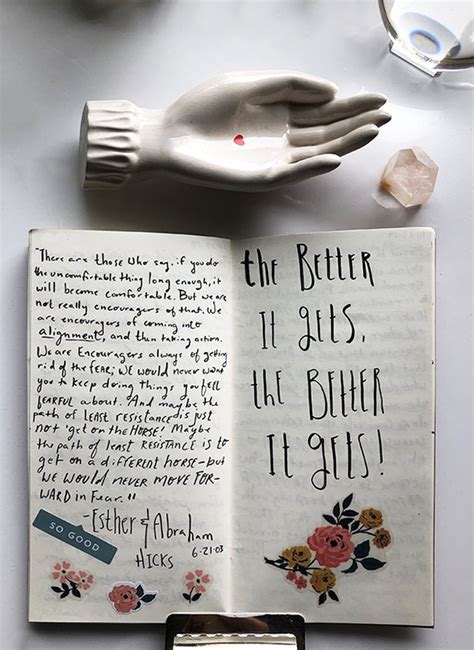 "There are those who say, if you do
the uncomfortable thing long enough, it
will become comfortable. But we are
not really encouragers of that. We
are encouragers of coming into
alignment, and then taking action.
We are Encouragers always of getting
rid of the fear; we would never want
you to keep doing things you feel
fearful about. And maybe the
path of least resistance is just
not 'get on the Horse! Maybe
the path of least resistance is to
get on a different horse - but
we would never move for-
ward in fear."
-Esther & Abraham
Hicks
6-21-03
SO GOOD
the Better
It gets,
the Better
It gets!